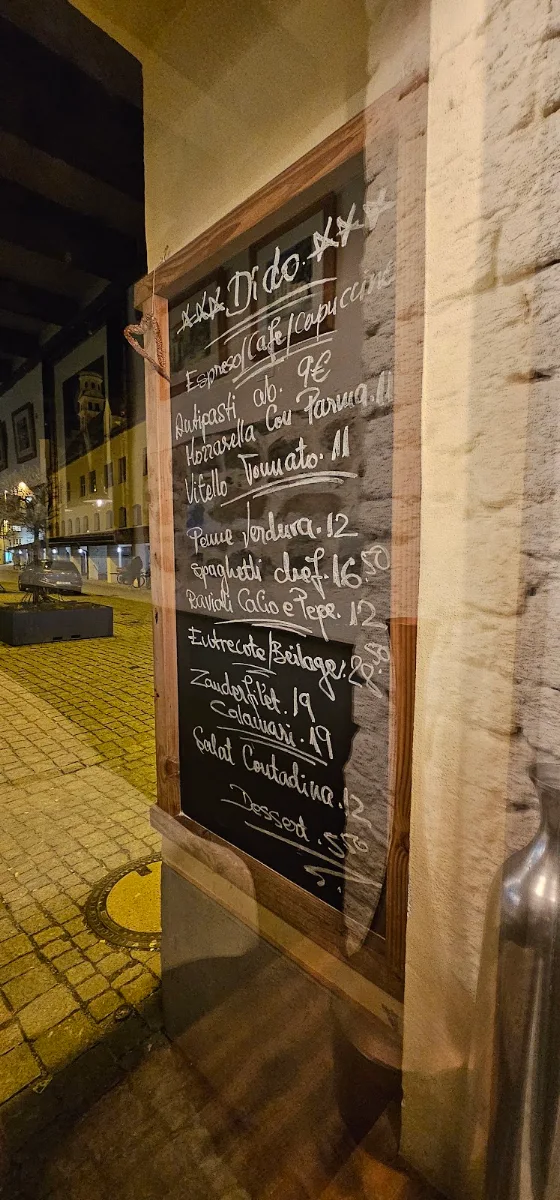 Dido.
Espreso/Cafe/Capuccino
Antipasti ab. 9€
Mozzarella Con Parma. 11
Vitello Tonnato. 11
Penne Verdura. 12
Spaghetti chef. 16.50
Ravioli Cacio e Pepe. 12
Entrecote/Beilage. 28.50
Zanderfilet. 19
Calamari. 19
Salat Contadina. 12
Dessert. 5.50
5.